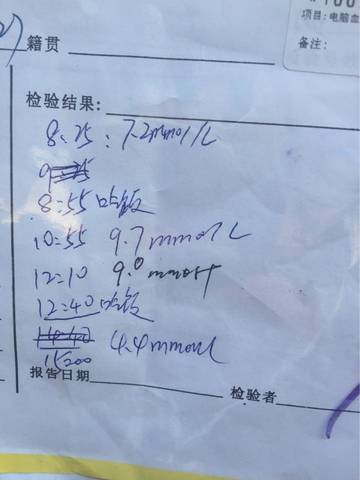 100
项目:电脑血
备注:
籍贯
检验结果:
8:25:7.2mmol/L
8:55吃饭
10:55 9.7mmol/L
12:10 9.0mmol
12:40吃饭
15:00 4.4mmol/L
报告日期
检验者